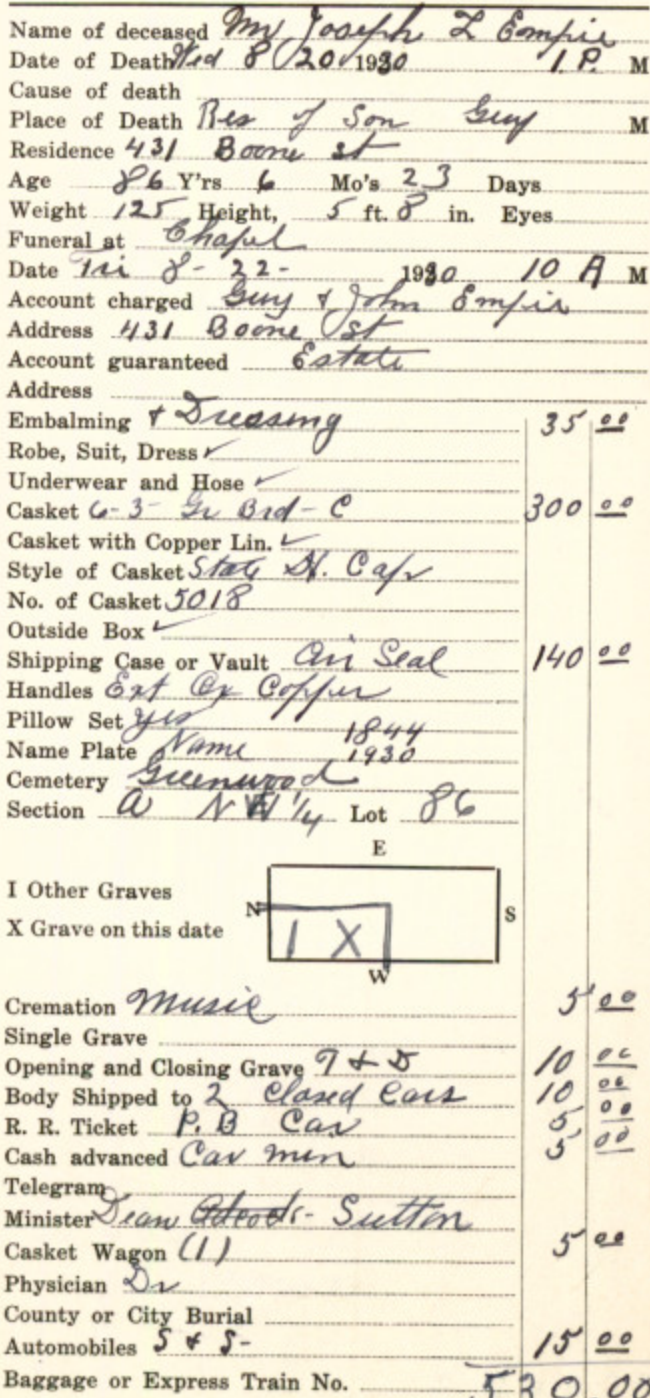 Name of deceased Mr Joseph L Empie
Date of Death Wed 8 20 1930 1 P. M
Cause of death
Place of Death Res of Son Guy M
Residence 431 Boone st
Age 86 Y'rs 6 Mo's 23 Days
Weight 125 Height, 5 ft. 8 in. Eyes
Funeral at Chapel
Date Fri 8- 22- 1930 10 A M
Account charged Guy & John Empie
Address 431 Boone St
Account guaranteed Estate
Address
Embalming & Dressing 35 00
Robe, Suit, Dress ✓
Underwear and Hose ✓
Casket 6-3- Gr Brd- C 300 00
Casket with Copper Lin. ✓
Style of Casket State H. Cap
No. of Casket 5018
Outside Box ✓
Shipping Case or Vault Air Seal 140 00
Handles Ext Ox Copper
Pillow Set yes 1844
Name Plate Name 1930
Cemetery Greenwood
Section A N W 1/4 Lot 86
E
I Other Graves
N S
X Grave on this date
I X
W
Cremation Music 5 00
Single Grave
Opening and Closing Grave T & D 10 00
Body Shipped to 2 Closed Cars 10 00
R. R. Ticket P. B Car 5 00
Cash advanced Car men 5 00
Telegram
Minister Dean Sutton
Casket Wagon (1) 5 00
Physician Dr
County or City Burial
Automobiles S & S- 15 00
Baggage or Express Train No. 530 00